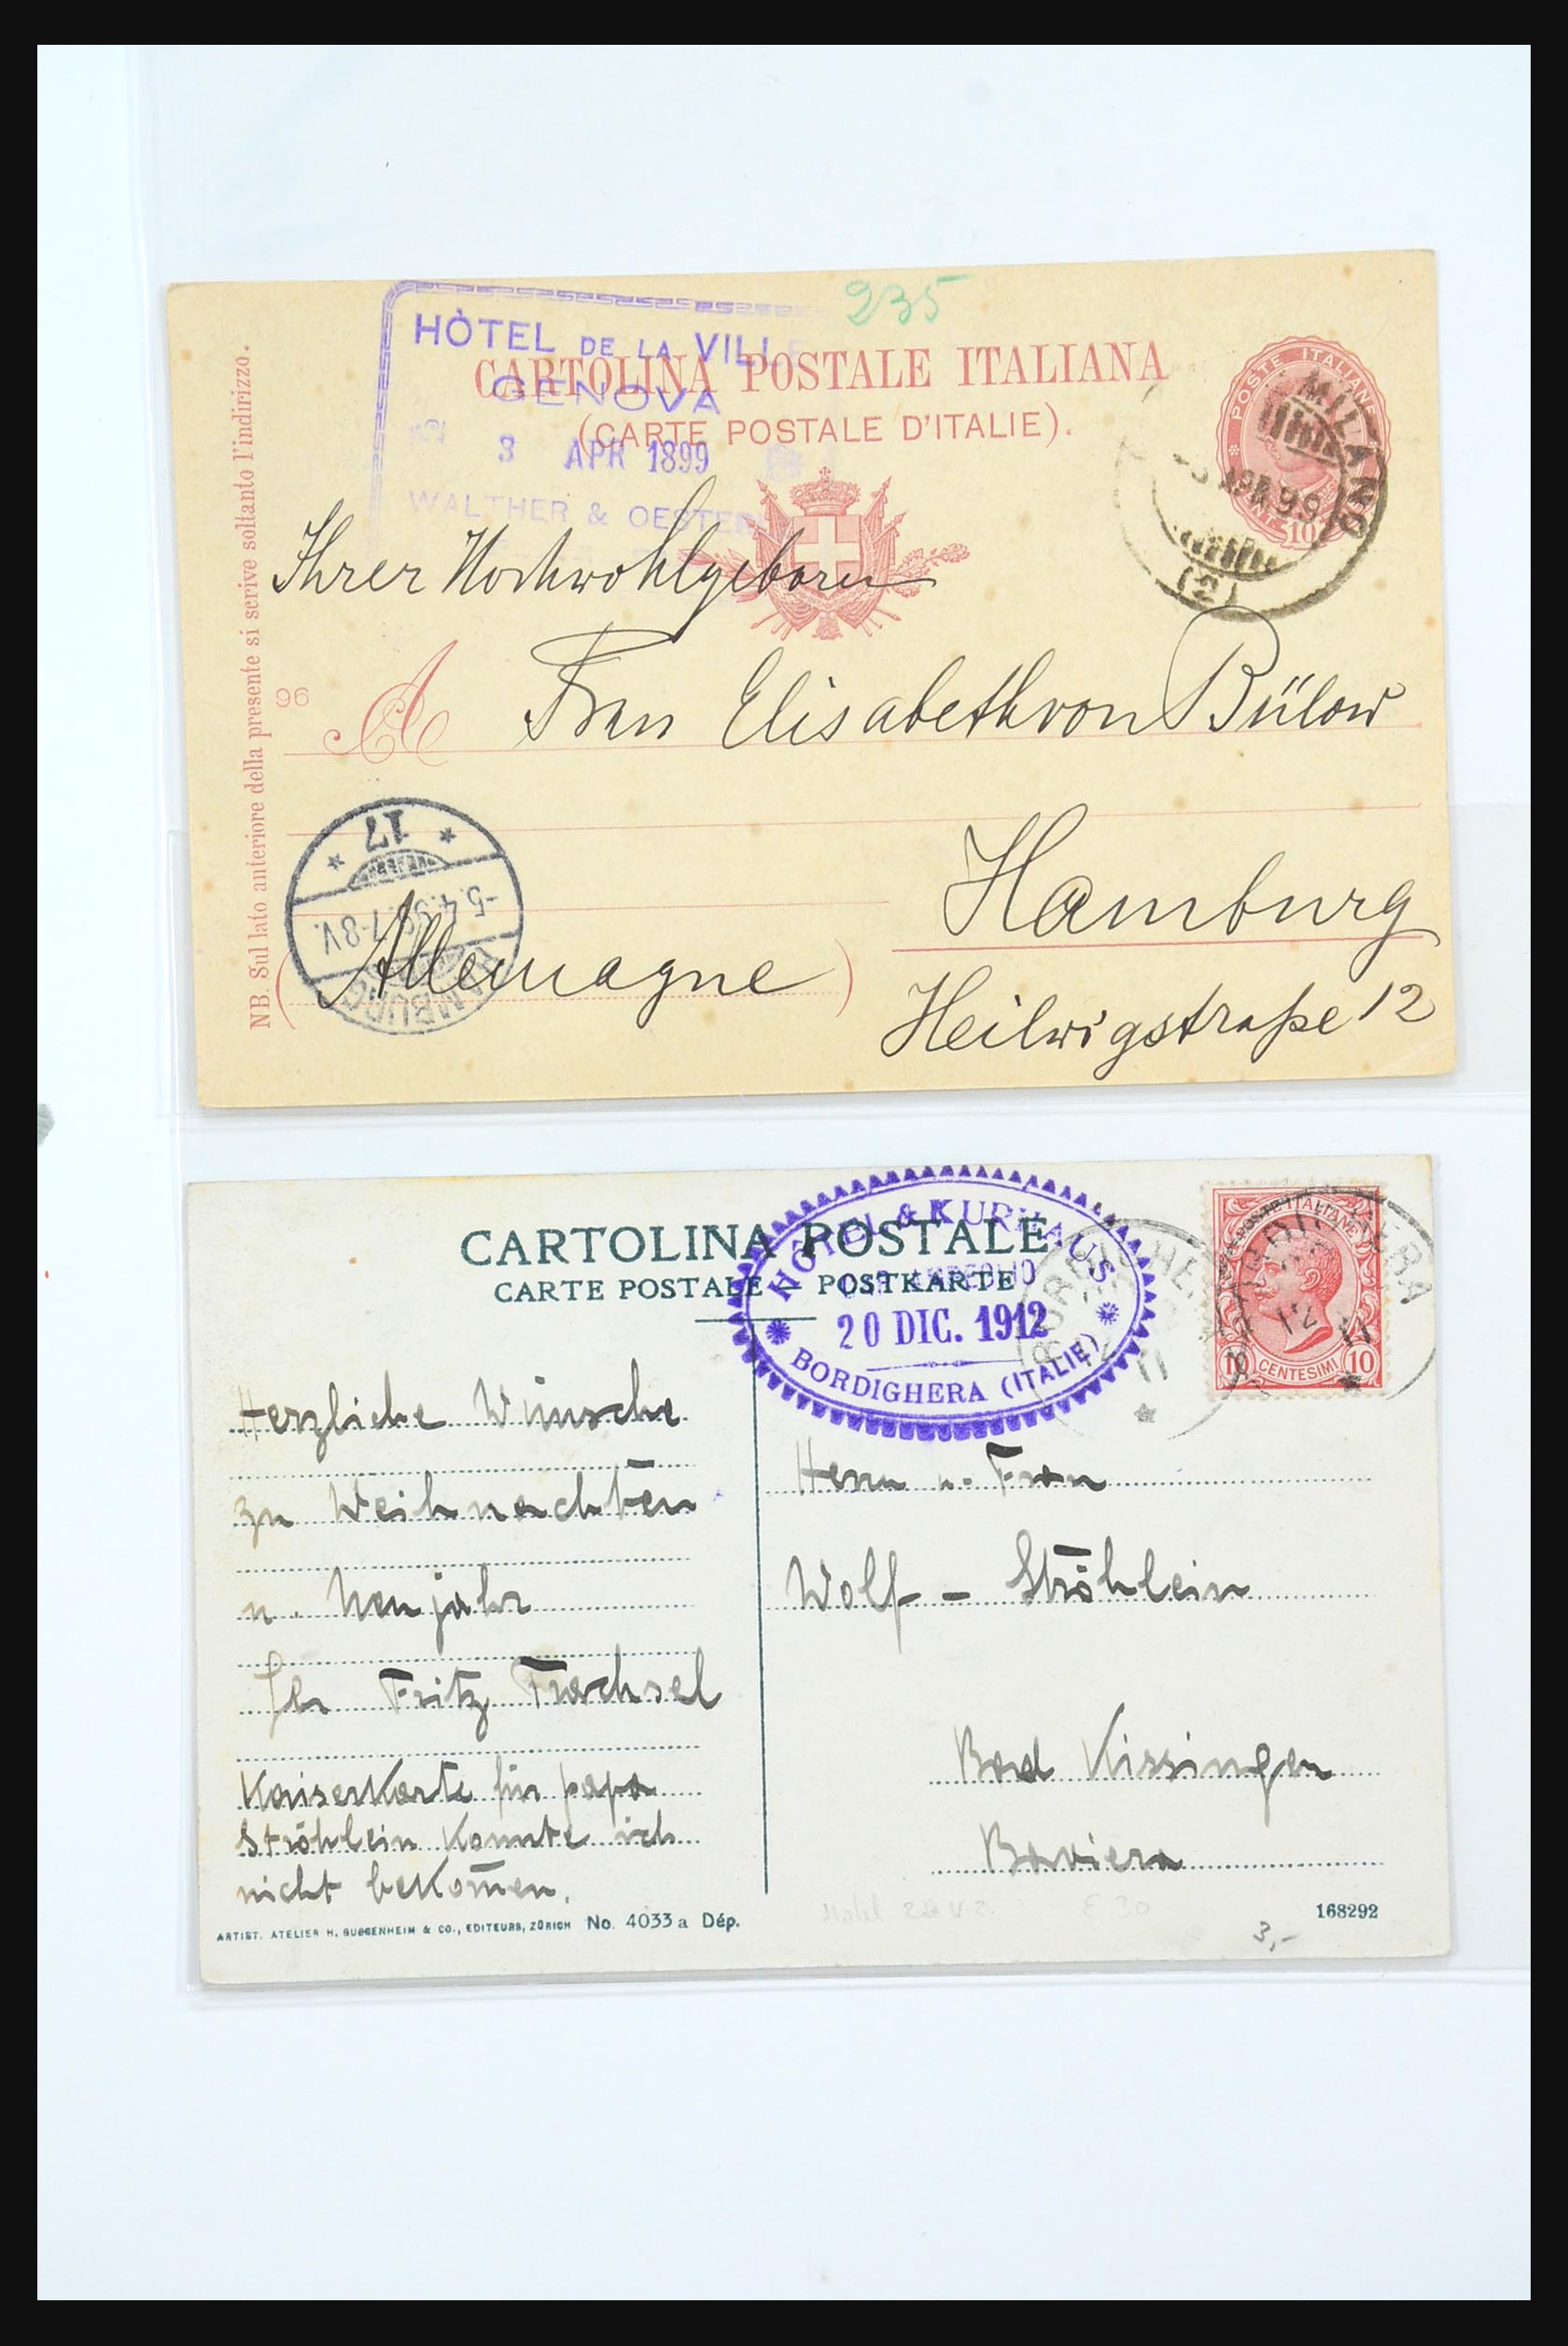 235
HÔTEL DE LA VILLE
GENOVA
3 APR 1899
WALTHER & OESTER
CARTOLINA POSTALE ITALIANA
(CARTE POSTALE D'ITALIE).
POSTE ITALIANE
CENT. 10
MILANO
99
(2)
NB. Sul lato anteriore della presente si scrive soltanto l'indirizzo.
96
Ihrer Hochwohlgeboren
A Frau Elisabeth von Bülow
Hamburg
Heilwigstraße 12
(Allemagne)
17
-5.4.99.7-8V.
HAMBURG
CARTOLINA POSTALE
CARTE POSTALE — POSTKARTE
HÔTEL & KURHAUS
20 DIC. 1912
BORDIGHERA (ITALIE)
BORDIGHERA
12
11
POSTE ITALIANE
10 CENTESIMI 10
BORDIGHERA
12
11
Herzliche Wünsche
zu Weihnachten
u. Neujahr
Fritz Trachsel
Kaiserkarte für papa
Ströhlein konnte ich
nicht bekom̄en.
Herrn u. Frau
Wolf - Ströhlein
Bad Kissingen
Baviera
ARTIST. ATELIER H. GUGGENHEIM & CO., EDITEURS, ZÜRICH No. 4033 a Dép.
168292
Hotel
€ 30
3,-